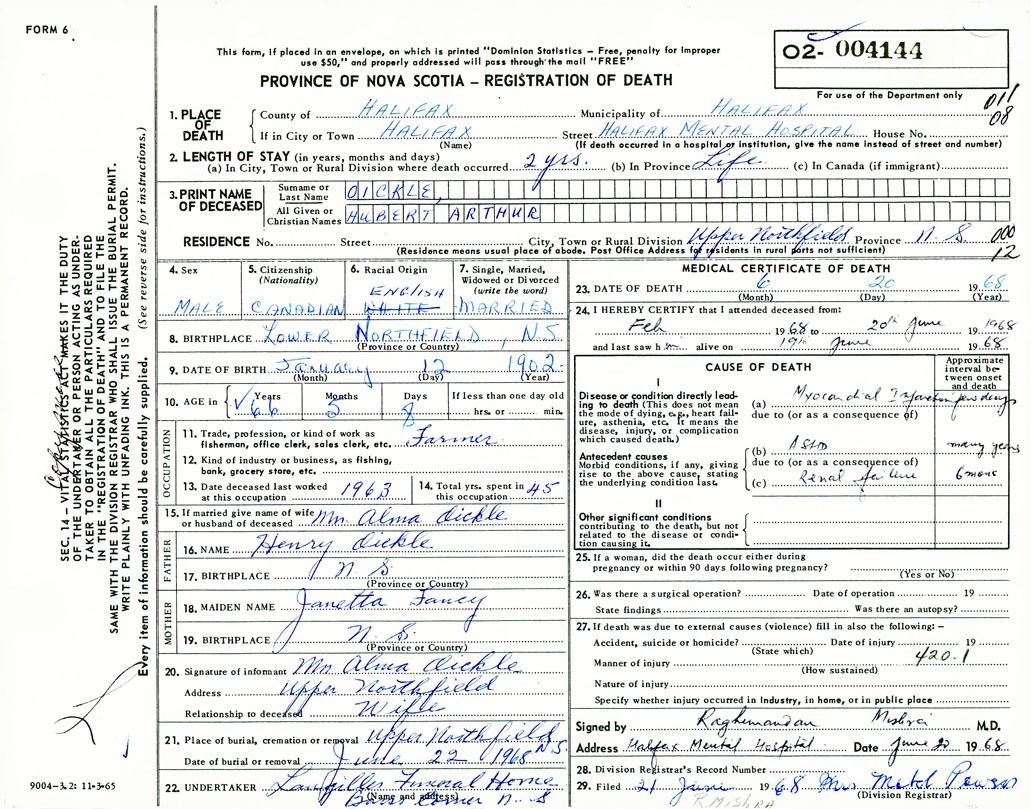 FORM 6
This form, if placed in an envelope, on which is printed "Dominion Statistics – Free, penalty for improper
use $50," and properly addressed will pass through the mail "FREE"
PROVINCE OF NOVA SCOTIA – REGISTRATION OF DEATH
02- 004144
For use of the Department only
011
08
1. PLACE OF DEATH
County of HALIFAX Municipality of HALIFAX
If in City or Town HALIFAX Street HALIFAX MENTAL HOSPITAL House No.
(Name) (If death occurred in a hospital or institution, give the name instead of street and number)
2. LENGTH OF STAY (in years, months and days)
(a) In City, Town or Rural Division where death occurred 2 yrs. (b) In Province Life (c) In Canada (if immigrant)
3. PRINT NAME OF DECEASED
Surname or Last Name OICKLE,
All Given or Christian Names HUBERT ARTHUR
RESIDENCE No. Street City, Town or Rural Division Upper Northfield Province N. S. 000
(Residence means usual place of abode. Post Office Address for residents in rural parts not sufficient) 12
4. Sex
MALE
5. Citizenship
(Nationality)
CANADIAN
6. Racial Origin
ENGLISH
WHITE
7. Single, Married, Widowed or Divorced
(write the word)
MARRIED
8. BIRTHPLACE LOWER NORTHFIELD, N.S
(Province or Country)
9. DATE OF BIRTH January 12 1902.
(Month) (Day) (Year)
10. AGE in Years Months Days If less than one day old
66 5 8 hrs. or min.
OCCUPATION
11. Trade, profession, or kind of work as
fisherman, office clerk, sales clerk, etc. Farmer
12. Kind of industry or business, as fishing,
bank, grocery store, etc.
13. Date deceased last worked
at this occupation 1963
14. Total yrs. spent in
this occupation 45
15. If married give name of wife
or husband of deceased Mrs. Alma Oickle
FATHER
16. NAME Henry Oickle
17. BIRTHPLACE N S
(Province or Country)
MOTHER
18. MAIDEN NAME Janetta Fancy
19. BIRTHPLACE N. S.
(Province or Country)
20. Signature of informant Mrs Alma Oickle
Address Upper Northfield
Relationship to deceased Wife
21. Place of burial, cremation or removal Upper Northfield N.S.
Date of burial or removal June 22 1968
22. UNDERTAKER Funeral Home
(Name and address)
N. S
MEDICAL CERTIFICATE OF DEATH
23. DATE OF DEATH 6 20 1968
(Month) (Day) (Year)
24. I HEREBY CERTIFY that I attended deceased from:
Feb 1968 to 20th June 1968
and last saw h alive on 19th June 1968
CAUSE OF DEATH
Approximate interval between onset and death
I
Disease or condition directly leading to death (This does not mean
the mode of dying, e.g., heart failure, asthenia, etc. It means the
disease, injury, or complication
which caused death.)
(a) Myocardial Infarction few days
due to (or as a consequence of)
Antecedent causes
Morbid conditions, if any, giving
rise to the above cause, stating
the underlying condition last.
(b) ASHD many years
due to (or as a consequence of)
(c) Renal failure 6 mons
II
Other significant conditions
contributing to the death, but not
related to the disease or condition causing it.
25. If a woman, did the death occur either during
pregnancy or within 90 days following pregnancy?
(Yes or No)
26. Was there a surgical operation? Date of operation 19
State findings Was there an autopsy?
27. If death was due to external causes (violence) fill in also the following: –
Accident, suicide or homicide? Date of injury 19
(State which) 420.1
Manner of injury
(How sustained)
Nature of injury
Specify whether injury occurred in Industry, in home, or in public place
Signed by Raghunandan Mishra M.D.
Address Halifax Mental Hospital Date June 20 1968
28. Division Registrar's Record Number
29. Filed 21 June 1968 Mrs
(Division Registrar)
R. MISHRA
SEC. 14 – VITAL STATISTICS ACT MAKES IT THE DUTY
OF THE UNDERTAKER OR PERSON ACTING AS UNDER-
TAKER TO OBTAIN ALL THE PARTICULARS REQUIRED
IN THE "REGISTRATION OF DEATH" AND TO FILE THE
SAME WITH THE DIVISION REGISTRAR WHO SHALL ISSUE THE BURIAL PERMIT.
WRITE PLAINLY WITH UNFADING INK. THIS IS A PERMANENT RECORD.
Every item of information should be carefully supplied. (See reverse side for instructions.)
9004-3.2: 11-3-65